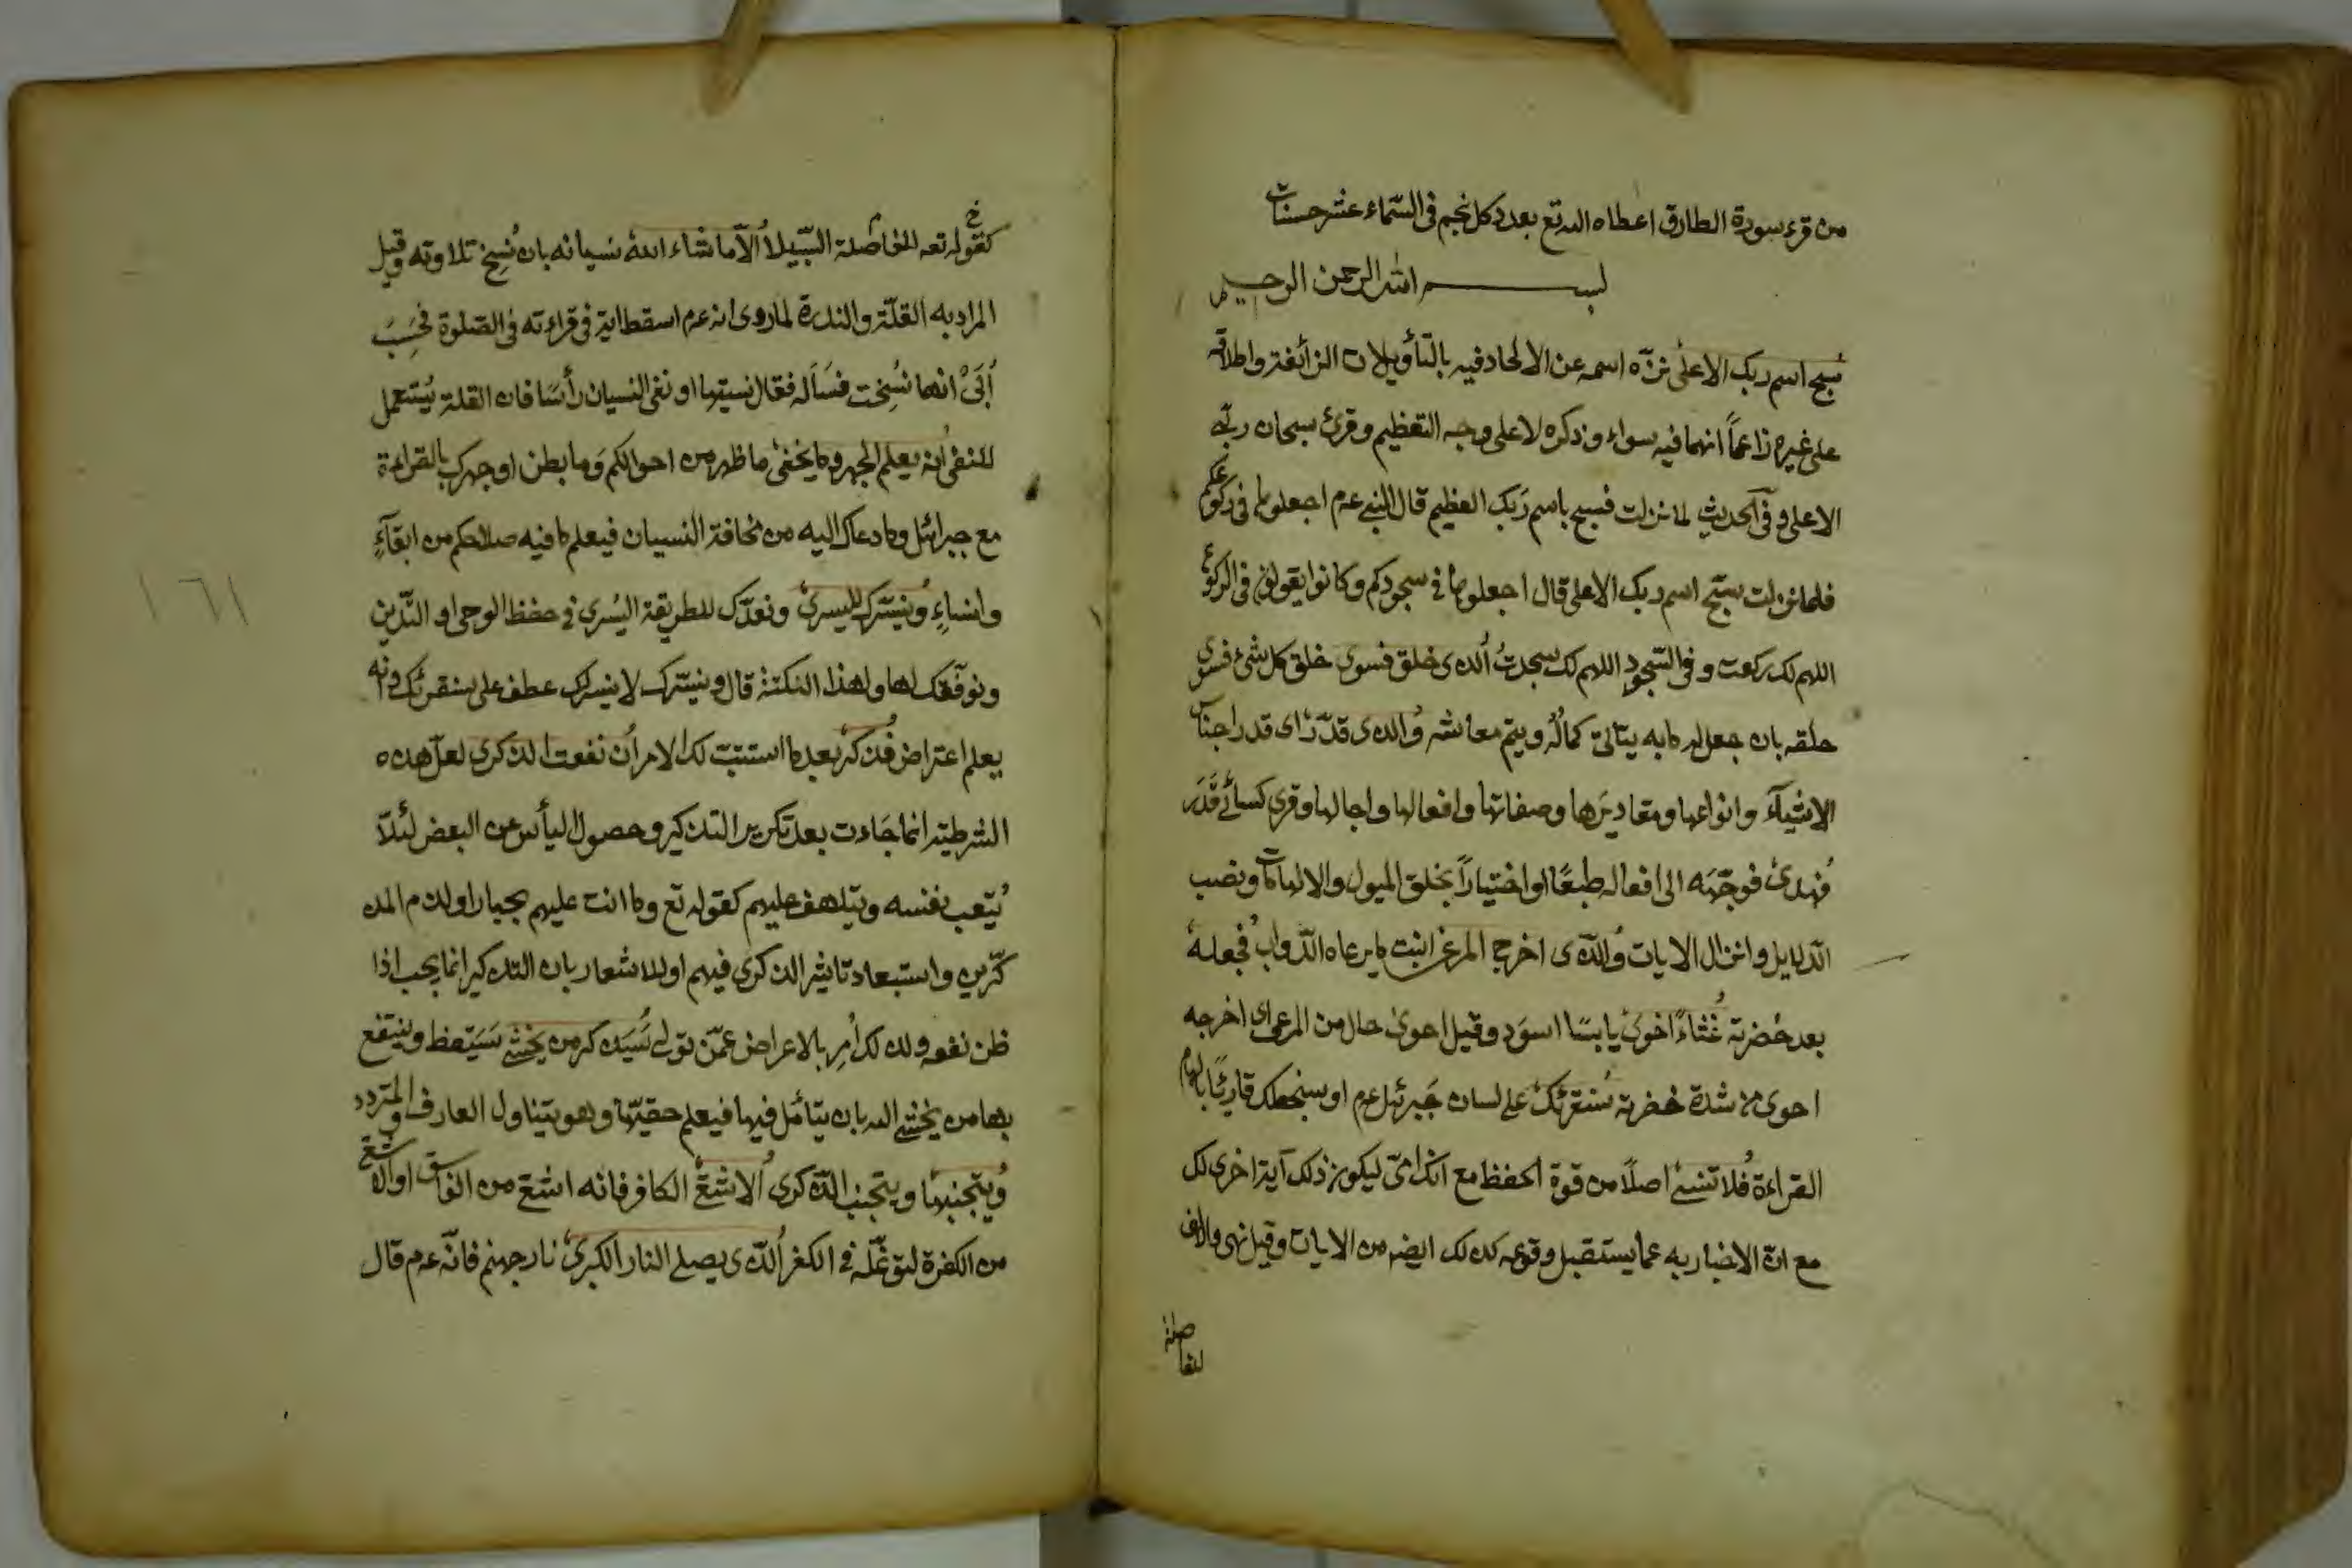 من قرء سورة الطارق اعطاه الله تع بعدد كل نجم فى السّماء عشر حسنات
بسم الله الرحمن الرحيم
سبح اسم ربك الاعلى نزّه اسمه عن الالحاد فيه بالتأويلات الزائغة واطلاقه
على غيره زاعماً انهما فيه سواء وذكره لا على وجه التعظيم وقرئ سبحان ربى
الاعلى وفى الحديث لما نزلت فسبح باسم ربك العظيم قال النبى عم اجعلوها فى ركوعكم
فلما نزلت سبّح اسم ربك الاعلى قال اجعلوها فى سجودكم وكانوا يقولون فى الركوع
اللهم لك ركعت وفى السّجود اللهم لك سجدتُ الذى خلق فسوى خلق كل شئ فسوى
خلقه بان جعل له ما به يتأتى كماله ويتم معاشه والذى قدّر اى قدر اجناس
الاشيآء وانواعها ومقاديرَها وصفاتها وافعالها واجالها وقرئ كسائى قَدَرَ
فهدى فوجّهه الى افعاله طبعًا او اختياراً بخلق الميول والالهامات ونصب
الدلايل وانزال الايات والّذى اخرج المرعى انبت ما يرعاه الدّواب فجعله
بعد خضرته غُثاءً احوى يابسًا اسوَد وقيل احوى حال من المرعى اى اخرجه
احوى من شدة خضرته سنقرئك على لسان جَبرئيل عم او سنجعلك قارئًا بالهام
القراءة فلا تنسى اصلًا من قوة الحفظ مع انك امّى ليكون ذلك آية اخرى لك
مع انّ الاخبار به عما يستقبل وقوعه كذلك ايضه من الايات وقيل نهى والالف
للفاصلة
كقوله تعه للفاصلة السّبيلا الّا ما شاء الله نسيانه بان نُسِخ تلاوته وقيل
المراد به القلّة والندرة لما روى انه عم اسقط اية فى قراءته فى الصّلوة فحَسِبَ
اُبَىّ انها نُسِخت فسَأله فقال نسيتها او نفى النسيان رأسًا فان القلة يُستعمل
للنفى انه يعلم الجهر وما يخفى ما ظهر من احوالكم وَما بطن او جهرك بالقراءة
مع جبرائل وما دعاك اليه من مخافة النسيان فيعلم ما فيه صلاحكم من ابقآءٍ
وانساءٍ ونيسّرك لليسرى ونعدّك للطريقة اليُسرى فى حفظ الوحى او التّدين
ونوفّقك لها ولهذا النكتة قال ونيسّرك لا نيسر لك عطف على سنقرئك وانه
يعلم اعتراض فذكر بعد ما استتبّ لك الامر ان نفعت الذكرى لعل هذه
الشرطية انما جَاءت بعد تكرير التذكير وحصول اليأس عن البعض لئلّا
يُتعب نفسه ويتلهف عليهم كقوله تع وما انت عليهم بجبار او لذم المذ
كّرين واستبعاد تاثير الذكرى فيهم او للاشعار بان التذكير انما يجب اذا
ظن نفعه ولذلك اُمِر بالاعراض عمّن تولى سَيذكر من يخشى سَيَتّعظ وينتفع
بها من يخشى الله بان يتأمّل فيها فيعلم حقيّتها وهو يتناول العارف والمتردد
ويتجنبها ويتجنب الذّكرى الاشقى الكافر فانه اشقى من الفاسق او الاشقى
من الكفرة لتوغّله فى الكفر الّذى يصلى النار الكبرى نار جهنم فانّه عم قال